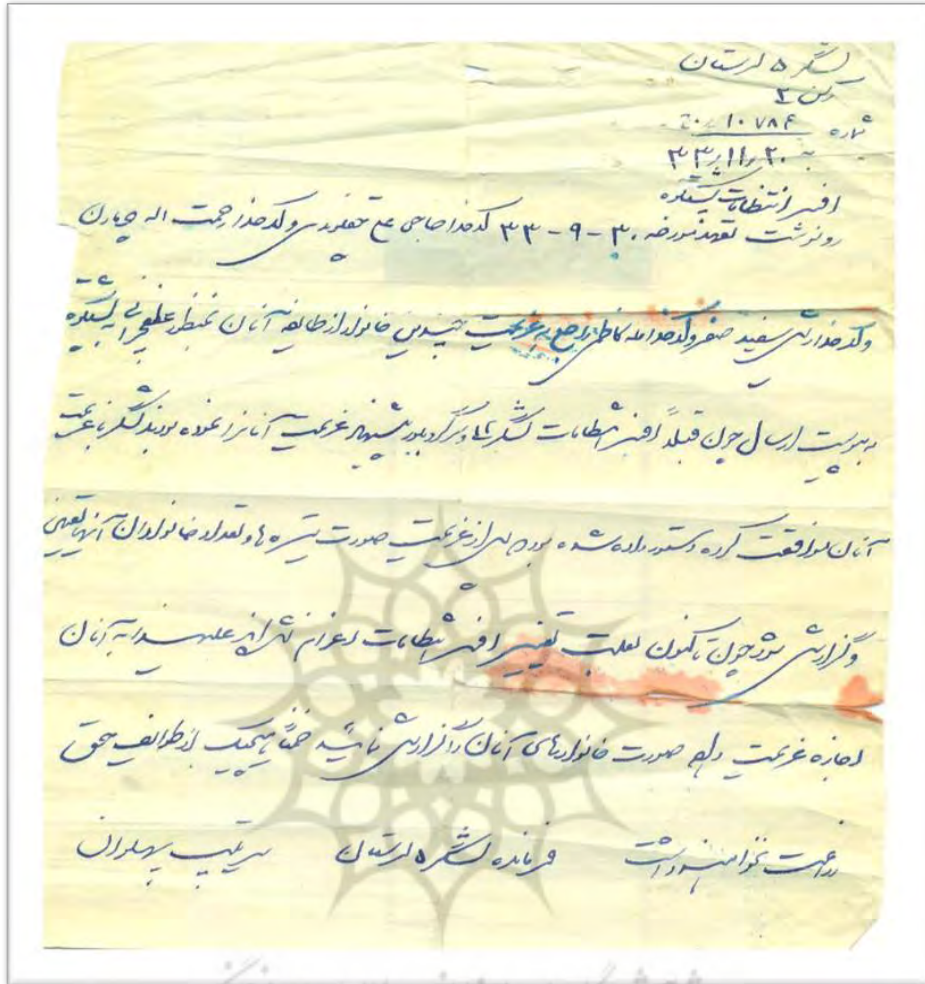 لشگر ۵ لرستان
رکن ۲
شماره ۱۰۷۸۶
به ۲۰ ر۱۱ ر۳۳
افسر انتظامات پشتکوه
رونوشت تعهد مورخه ۳۰-۹-۳۳ کدخدا حاجی و کدخدا رحمت اله
و کدخدا صفر و کدخدا راجع به عزیمت چندین خانوار از طایفه آنان بمنظور علفچرانی به پشتکوه
به پیوست ارسال چون قبلاً افسر انتظامات لشگر و پیشنهاد عزیمت آنانرا نموده بودند لشگر با عزیمت
آنان موافقت کرده و دستور داده شده بود پس از عزیمت صورت تیره ها و تعداد خانواران آنها تعیین
و گزارش شود چون تاکنون بعلت تغییر افسر انتظامات و اعزام به آنان
اجازه عزیمت داده صورت خانوارهای آنان را گزارش نمائید ضمناً هیچیک از طوایف حق
زراعت نخواهند داشت فرمانده لشگر ۵ لرستان سرتیپ پهلوان